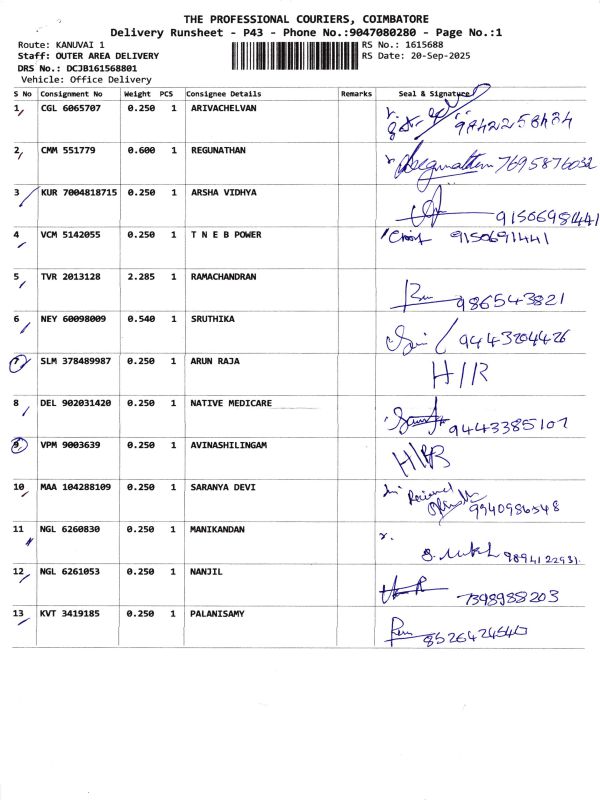 THE PROFESSIONAL COURIERS, COIMBATORE
Delivery Runsheet - P43 - Phone No.:9047080280 - Page No.:1
Route: KANUVAI 1 RS No.: 1615688
Staff: OUTER AREA DELIVERY RS Date: 20-Sep-2025
DRS No.: DCJB161568801
Vehicle: Office Delivery
S No Consignment No Weight PCS Consignee Details Remarks Seal & Signature
1 CGL 6065707 0.250 1 ARIVACHELVAN
2 CMM 551779 0.600 1 REGUNATHAN Regunathan 7695876032
3 KUR 7004818715 0.250 1 ARSHA VIDHYA 9150698441
4 VCM 5142055 0.250 1 T N E B POWER 9150691441
5 TVR 2013128 2.285 1 RAMACHANDRAN 986543821
6 NEY 60098009 0.540 1 SRUTHIKA 9443204426
7 SLM 378489987 0.250 1 ARUN RAJA H/R
8 DEL 902031420 0.250 1 NATIVE MEDICARE 9443385107
9 VPM 9003639 0.250 1 AVINASHILINGAM
10 MAA 104288109 0.250 1 SARANYA DEVI Received 9940986548
11 NGL 6260830 0.250 1 MANIKANDAN 9894122931
12 NGL 6261053 0.250 1 NANJIL 7398988203
13 KVT 3419185 0.250 1 PALANISAMY 8526424540